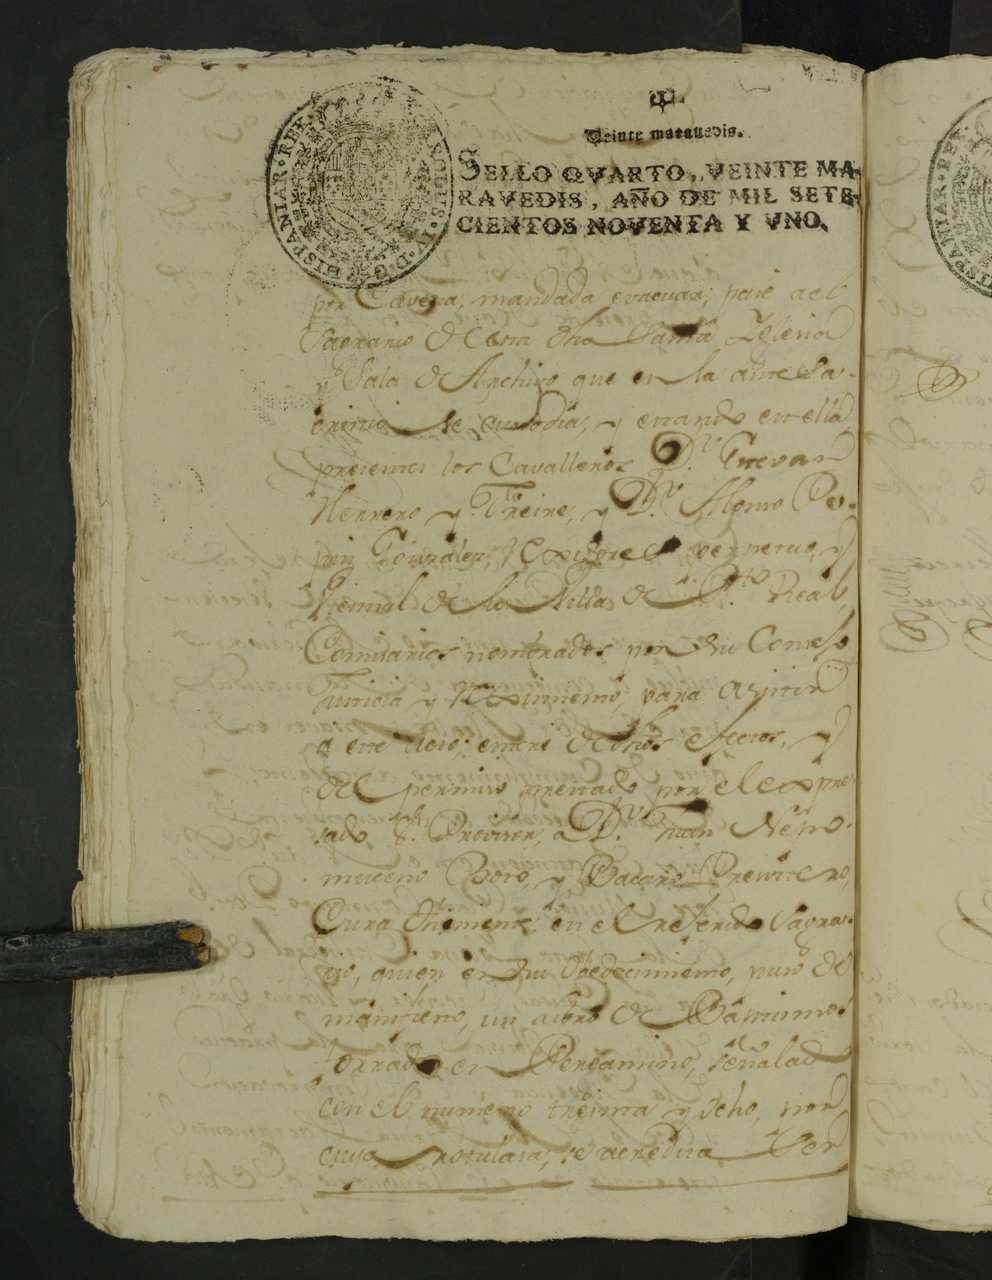 Veinte maravedis.
SELLO QVARTO, VEINTE MA-
RAVEDIS, AÑO DE MIL SETE-
CIENTOS NOVENTA Y VNO.
HISPANIAR·REX· CAROLUS·IV·D·G·
por Cavera, mandada evacuar, pasé al
Sagrario de esta dha Santa Iglesia
y Sala de Archivo que en la ante Sa-
cristia se custodia, y estando en ella
presentes los Cavalleros Dn. Estevan
Herrero y Freire, y Dn. Alonso Pe-
Gonzales, Rexidores perpetuo, y
vienal de la Villa de Pto. Real,
Comisarios nombrados por su Consejo
Justicia y Reximiento, para asistir
a este acto; entre otros efectos, y
del permiso prestado por el expre-
sado Sr. Provisor, a Dn. Juan Nepo-
muceno Boro, y Bacaro Presvitero,
Cura theniente en el referido Sagra-
rio, quien en su obedecimiento, puso de
manifiesto, un libro de Bautismos
forrado en Pergamino, señalado
con el numero treinta y ocho, por
cuya rotulata, se acredita Ser